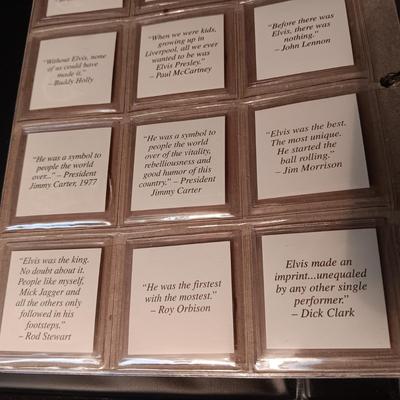 "Without Elvis, none
of us could have
made it."
– Buddy Holly
"When we were kids,
growing up in
Liverpool, all we ever
wanted to be was
Elvis Presley."
– Paul McCartney
"Before there was
Elvis, there was
nothing."
– John Lennon
"He was a symbol to
people the world
over..." – President
Jimmy Carter, 1977
"He was a symbol to
people the world
over of the vitality,
rebelliousness and
good humor of this
country." – President
Jimmy Carter
"Elvis was the best.
The most unique.
He started the
ball rolling."
– Jim Morrison
"Elvis was the king.
No doubt about it.
People like myself,
Mick Jagger and
all the others only
followed in his
footsteps."
– Rod Stewart
"He was the firstest
with the mostest."
– Roy Orbison
Elvis made an
imprint...unequaled
by any other single
performer."
– Dick Clark